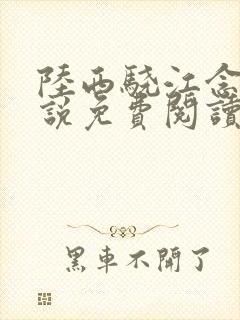 陸西驍江念
說免費閱讀
黑車不開了